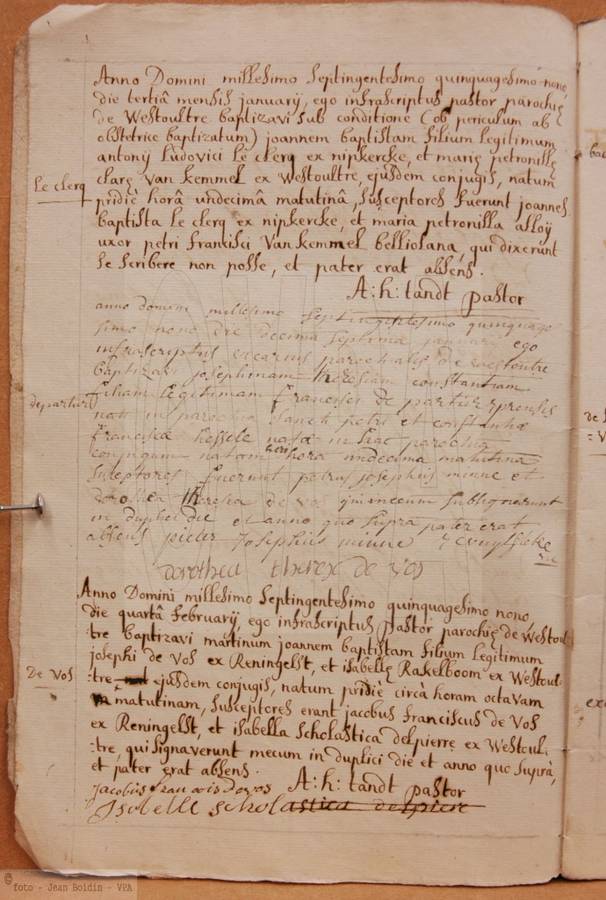 Anno Domini millesimo septingentesimo quinquagesimo nono,
die tertiâ mensis januarij, ego infrascriptus pastor parochię
de Westoultre baptizavi sub conditione (ob periculum ab
obstetrice baptizatum) joannem baptistam filium legitimum
antonij Ludovici Le clerq ex nipkercke, et marię petronillę
Le clerq
clarę van kemmel ex Westoultre, ejusdem conjugis, natum
pridiè horâ undecimâ matutinâ, susceptores fuerunt joannes
baptista le clerq ex nipkercke, et maria petronilla alloÿ
uxor petri francisci Van kemmel belliolana, qui dixerunt
se scribere non posse, et pater erat absens.
A: h: tandt pastor
anno domini millesimo septingentesimo quinquage
simo nono die decima septima januarii ego
infrascriptus vicarius parochialis de westoutre
baptizavi josephinam theresiam constantiam
departuri
filiam legitimam francisci de partur
nati in parochia sancti petri et constantiæ
franciscæ hessele natæ in hac parochia
conjugum natam heri hora undecima matutina
susceptores fuerunt petrus josephus minne et
dorothea theresia de vos qui mecum subsignarunt
in duplici die et anno quo supra pater erat
absens pieter Josephus minne
dorothea therex de vos
Anno Domini millesimo septingentesimo quinquagesimo nono,
die quartâ februarij, ego infrascriptus pastor parochię de Westoul
:tre baptizavi martinum joannem baptistam filium legitimum
josephi de Vos ex Reningelst, et isabellę Rakelboom ex Westoul
De Vos
:tre ejusdem conjugis, natum pridiè circà horam octavam
matutinam, susceptores erant jacobus franciscus de Vos
ex Reningelst, et isabella scholastica delpierre ex Westoul:
:tre, qui signaverunt mecum in duplici die et anno quo suprà,
et pater erat absens.
A: h: tandt pastor
jacobus francois devos
Isabelle scholastica delpiere
© foto - Jean Boldin - VPA